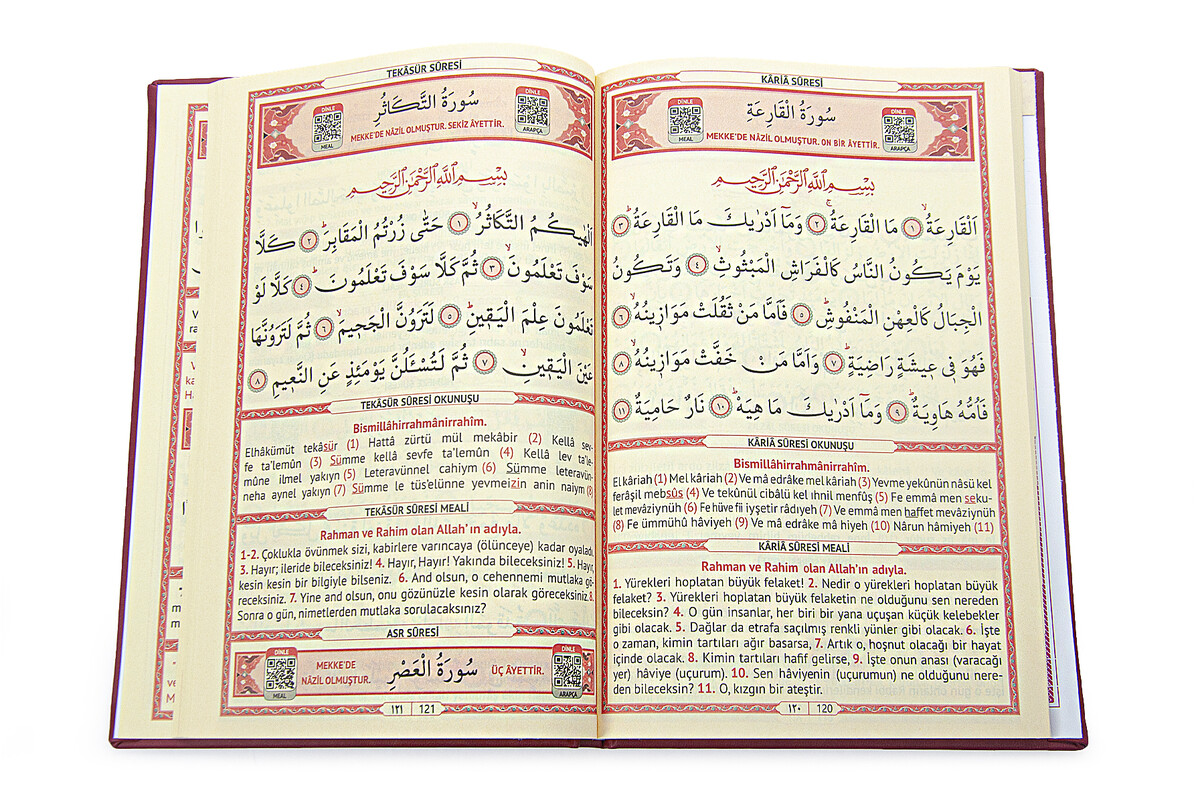 KÂRİA SÛRESİ
DİNLE
سُورَةُ الْقَارِعَةِ
DİNLE
MEAL
MEKKE'DE NÂZİL OLMUŞTUR. ON BİR ÂYETTİR.
ARAPÇA
بِسْمِ اللّٰهِ الرَّحْمٰنِ الرَّحِيمِ
اَلْقَارِعَةُۙ ﴿١﴾ مَا الْقَارِعَةُۚ ﴿٢﴾ وَمَٓا اَدْرٰيكَ مَا الْقَارِعَةُۜ ﴿٣﴾
يَوْمَ يَكُونُ النَّاسُ كَالْفَرَاشِ الْمَبْثُوثِۙ ﴿٤﴾ وَتَكُونُ
الْجِبَالُ كَالْعِهْنِ الْمَنْفُوشِۜ ﴿٥﴾ فَاَمَّا مَنْ ثَقُلَتْ مَوَازٖينُهُۙ ﴿٦﴾
فَهُوَ فٖي عٖيشَةٍ رَاضِيَةٍۜ ﴿٧﴾ وَاَمَّا مَنْ خَفَّتْ مَوَازٖينُهُۙ ﴿٨﴾
فَاُمُّهُ هَاوِيَةٌۜ ﴿٩﴾ وَمَٓا اَدْرٰيكَ مَا هِيَهْۜ ﴿١٠﴾ نَارٌ حَامِيَةٌ ﴿١١﴾
KÂRİA SÛRESİ OKUNUŞU
Bismillâhirrahmânirrahîm.
El kâriah (1) Mel kâriah (2) Ve mâ edrâke mel kâriah (3) Yevme yekûnün nâsü kel
ferâşil mebsûs (4) Ve tekûnül cibâlü kel ıhnil menfûş (5) Fe emmâ men seku-
let mevâziynüh (6) Fe hüve fii iyşetir râdıyeh (7) Ve emmâ men haffet mevâziynüh
(8) Fe ümmühû hâviyeh (9) Ve mâ edrâke mâ hiyeh (10) Nârun hâmiyeh (11)
KÂRİA SÛRESİ MEALİ
Rahman ve Rahim olan Allah'ın adıyla.
1. Yürekleri hoplatan büyük felaket! 2. Nedir o yürekleri hoplatan büyük
felaket? 3. Yürekleri hoplatan büyük felaketin ne olduğunu sen nereden
bileceksin? 4. O gün insanlar, her biri bir yana uçuşan küçük kelebekler
gibi olacak. 5. Dağlar da etrafa saçılmış renkli yünler gibi olacak. 6. İşte
o zaman, kimin tartıları ağır basarsa, 7. Artık o, hoşnut olacağı bir hayat
içinde olacak. 8. Kimin tartıları hafif gelirse, 9. İşte onun anası (varacağı
yer) hâviye (uçurum). 10. Sen hâviyenin (uçurumun) ne olduğunu nere-
den bileceksin? 11. O, kızgın bir ateştir.
١٢٠ 120
TEKÂSÜR SÛRESİ
DİNLE
سُورَةُ التَّكَاثُرِ
DİNLE
MEAL
MEKKE'DE NÂZİL OLMUŞTUR. SEKİZ ÂYETTİR.
ARAPÇA
بِسْمِ اللّٰهِ الرَّحْمٰنِ الرَّحِيمِ
اَلْهٰيكُمُ التَّكَاثُرُۙ ﴿١﴾ حَتّٰى زُرْتُمُ الْمَقَابِرَۜ ﴿٢﴾ كَلَّا
سَوْفَ تَعْلَمُونَۙ ﴿٣﴾ ثُمَّ كَلَّا سَوْفَ تَعْلَمُونَۜ ﴿٤﴾ كَلَّا لَوْ
تَعْلَمُونَ عِلْمَ الْيَقٖينِۜ ﴿٥﴾ لَتَرَوُنَّ الْجَحٖيمَۙ ﴿٦﴾ ثُمَّ لَتَرَوُنَّهَا
عَيْنَ الْيَقٖينِۙ ﴿٧﴾ ثُمَّ لَتُسْـَٔلُنَّ يَوْمَئِذٍ عَنِ النَّعٖيمِ ﴿٨﴾
TEKÂSÜR SÛRESİ OKUNUŞU
Bismillâhirrahmânirrahîm.
Elhâkümüt tekâsür (1) Hattâ zürtü mül mekâbir (2) Kellâ sev-
fe ta'lemûn (3) Sümme kellâ sevfe ta'lemûn (4) Kellâ lev ta'le-
mûne ilmel yakıyn (5) Leteravünnel cahiym (6) Sümme leteravün-
neha aynel yakıyn (7) Sümme le tüs'elünne yevmeizin anin naiym (8)
TEKÂSÜR SÛRESİ MEALİ
Rahman ve Rahim olan Allah'ın adıyla.
1-2. Çoklukla övünmek sizi, kabirlere varıncaya (ölünceye) kadar oyaladı.
3. Hayır; ileride bileceksiniz! 4. Hayır, Hayır! Yakında bileceksiniz! 5. Hayır,
kesin kesin bir bilgiyle bilseniz. 6. And olsun, o cehennemi mutlaka gö-
receksiniz. 7. Yine and olsun, onu gözünüzle kesin olarak göreceksiniz. 8.
Sonra o gün, nimetlerden mutlaka sorulacaksınız?
ASR SÛRESİ
DİNLE
MEKKE'DE
NÂZİL OLMUŞTUR.
سُورَةُ الْعَصْرِ
ÜÇ ÂYETTİR.
DİNLE
MEAL
ARAPÇA
١٢١ 121